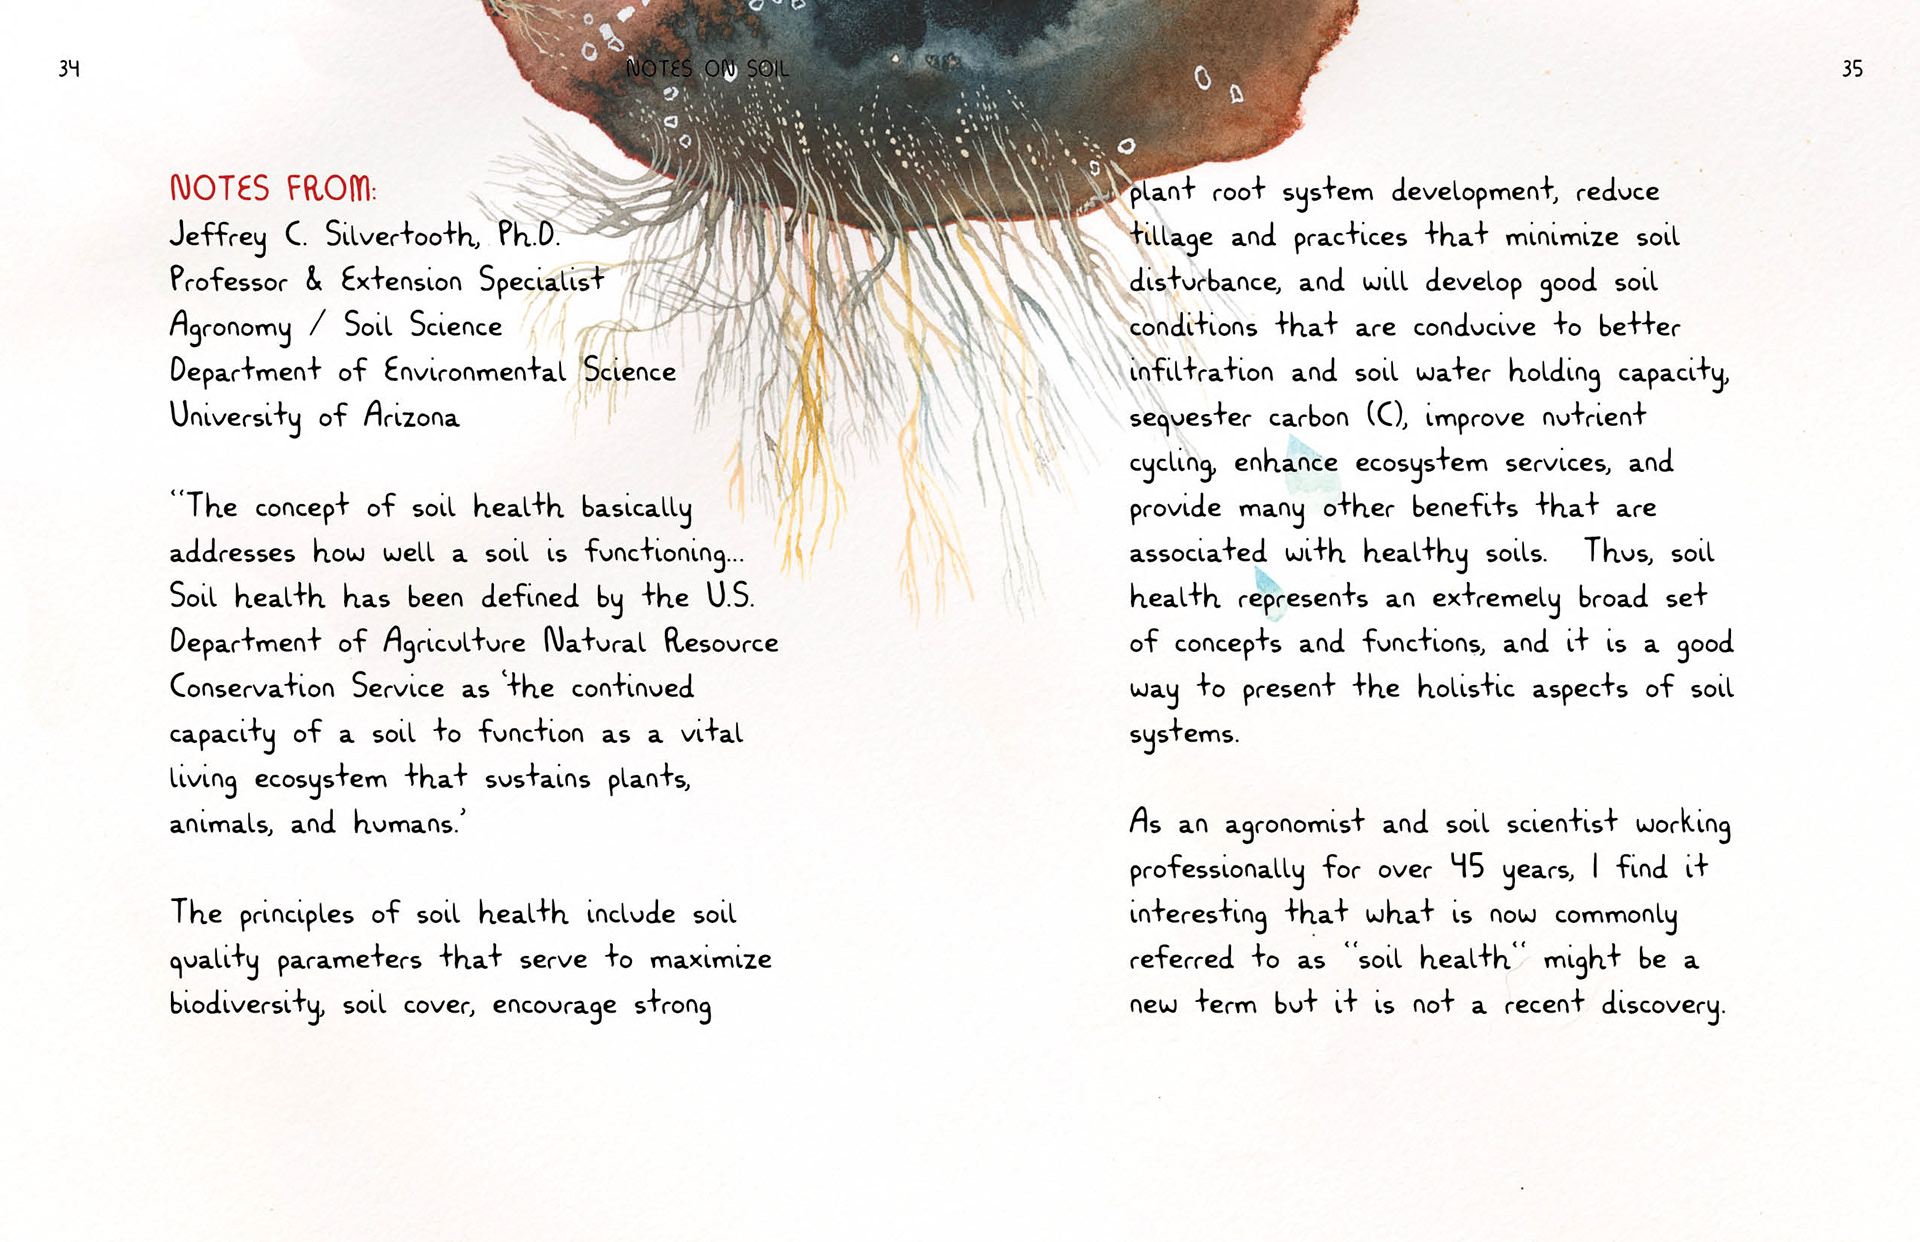 34
NOTES ON SOIL
35
NOTES FROM:
Jeffrey C. Silvertooth, Ph.D.
Professor & Extension Specialist
Agronomy / Soil Science
Department of Environmental Science
University of Arizona
“The concept of soil health basically
addresses how well a soil is functioning...
Soil health has been defined by the U.S.
Department of Agriculture Natural Resource
Conservation Service as ‘the continued
capacity of a soil to function as a vital
living ecosystem that sustains plants,
animals, and humans.’
The principles of soil health include soil
quality parameters that serve to maximize
biodiversity, soil cover, encourage strong
plant root system development, reduce
tillage and practices that minimize soil
disturbance, and will develop good soil
conditions that are conducive to better
infiltration and soil water holding capacity,
sequester carbon (C), improve nutrient
cycling, enhance ecosystem services, and
provide many other benefits that are
associated with healthy soils. Thus, soil
health represents an extremely broad set
of concepts and functions, and it is a good
way to present the holistic aspects of soil
systems.
As an agronomist and soil scientist working
professionally for over 45 years, I find it
interesting that what is now commonly
referred to as “soil health“ might be a
new term but it is not a recent discovery.